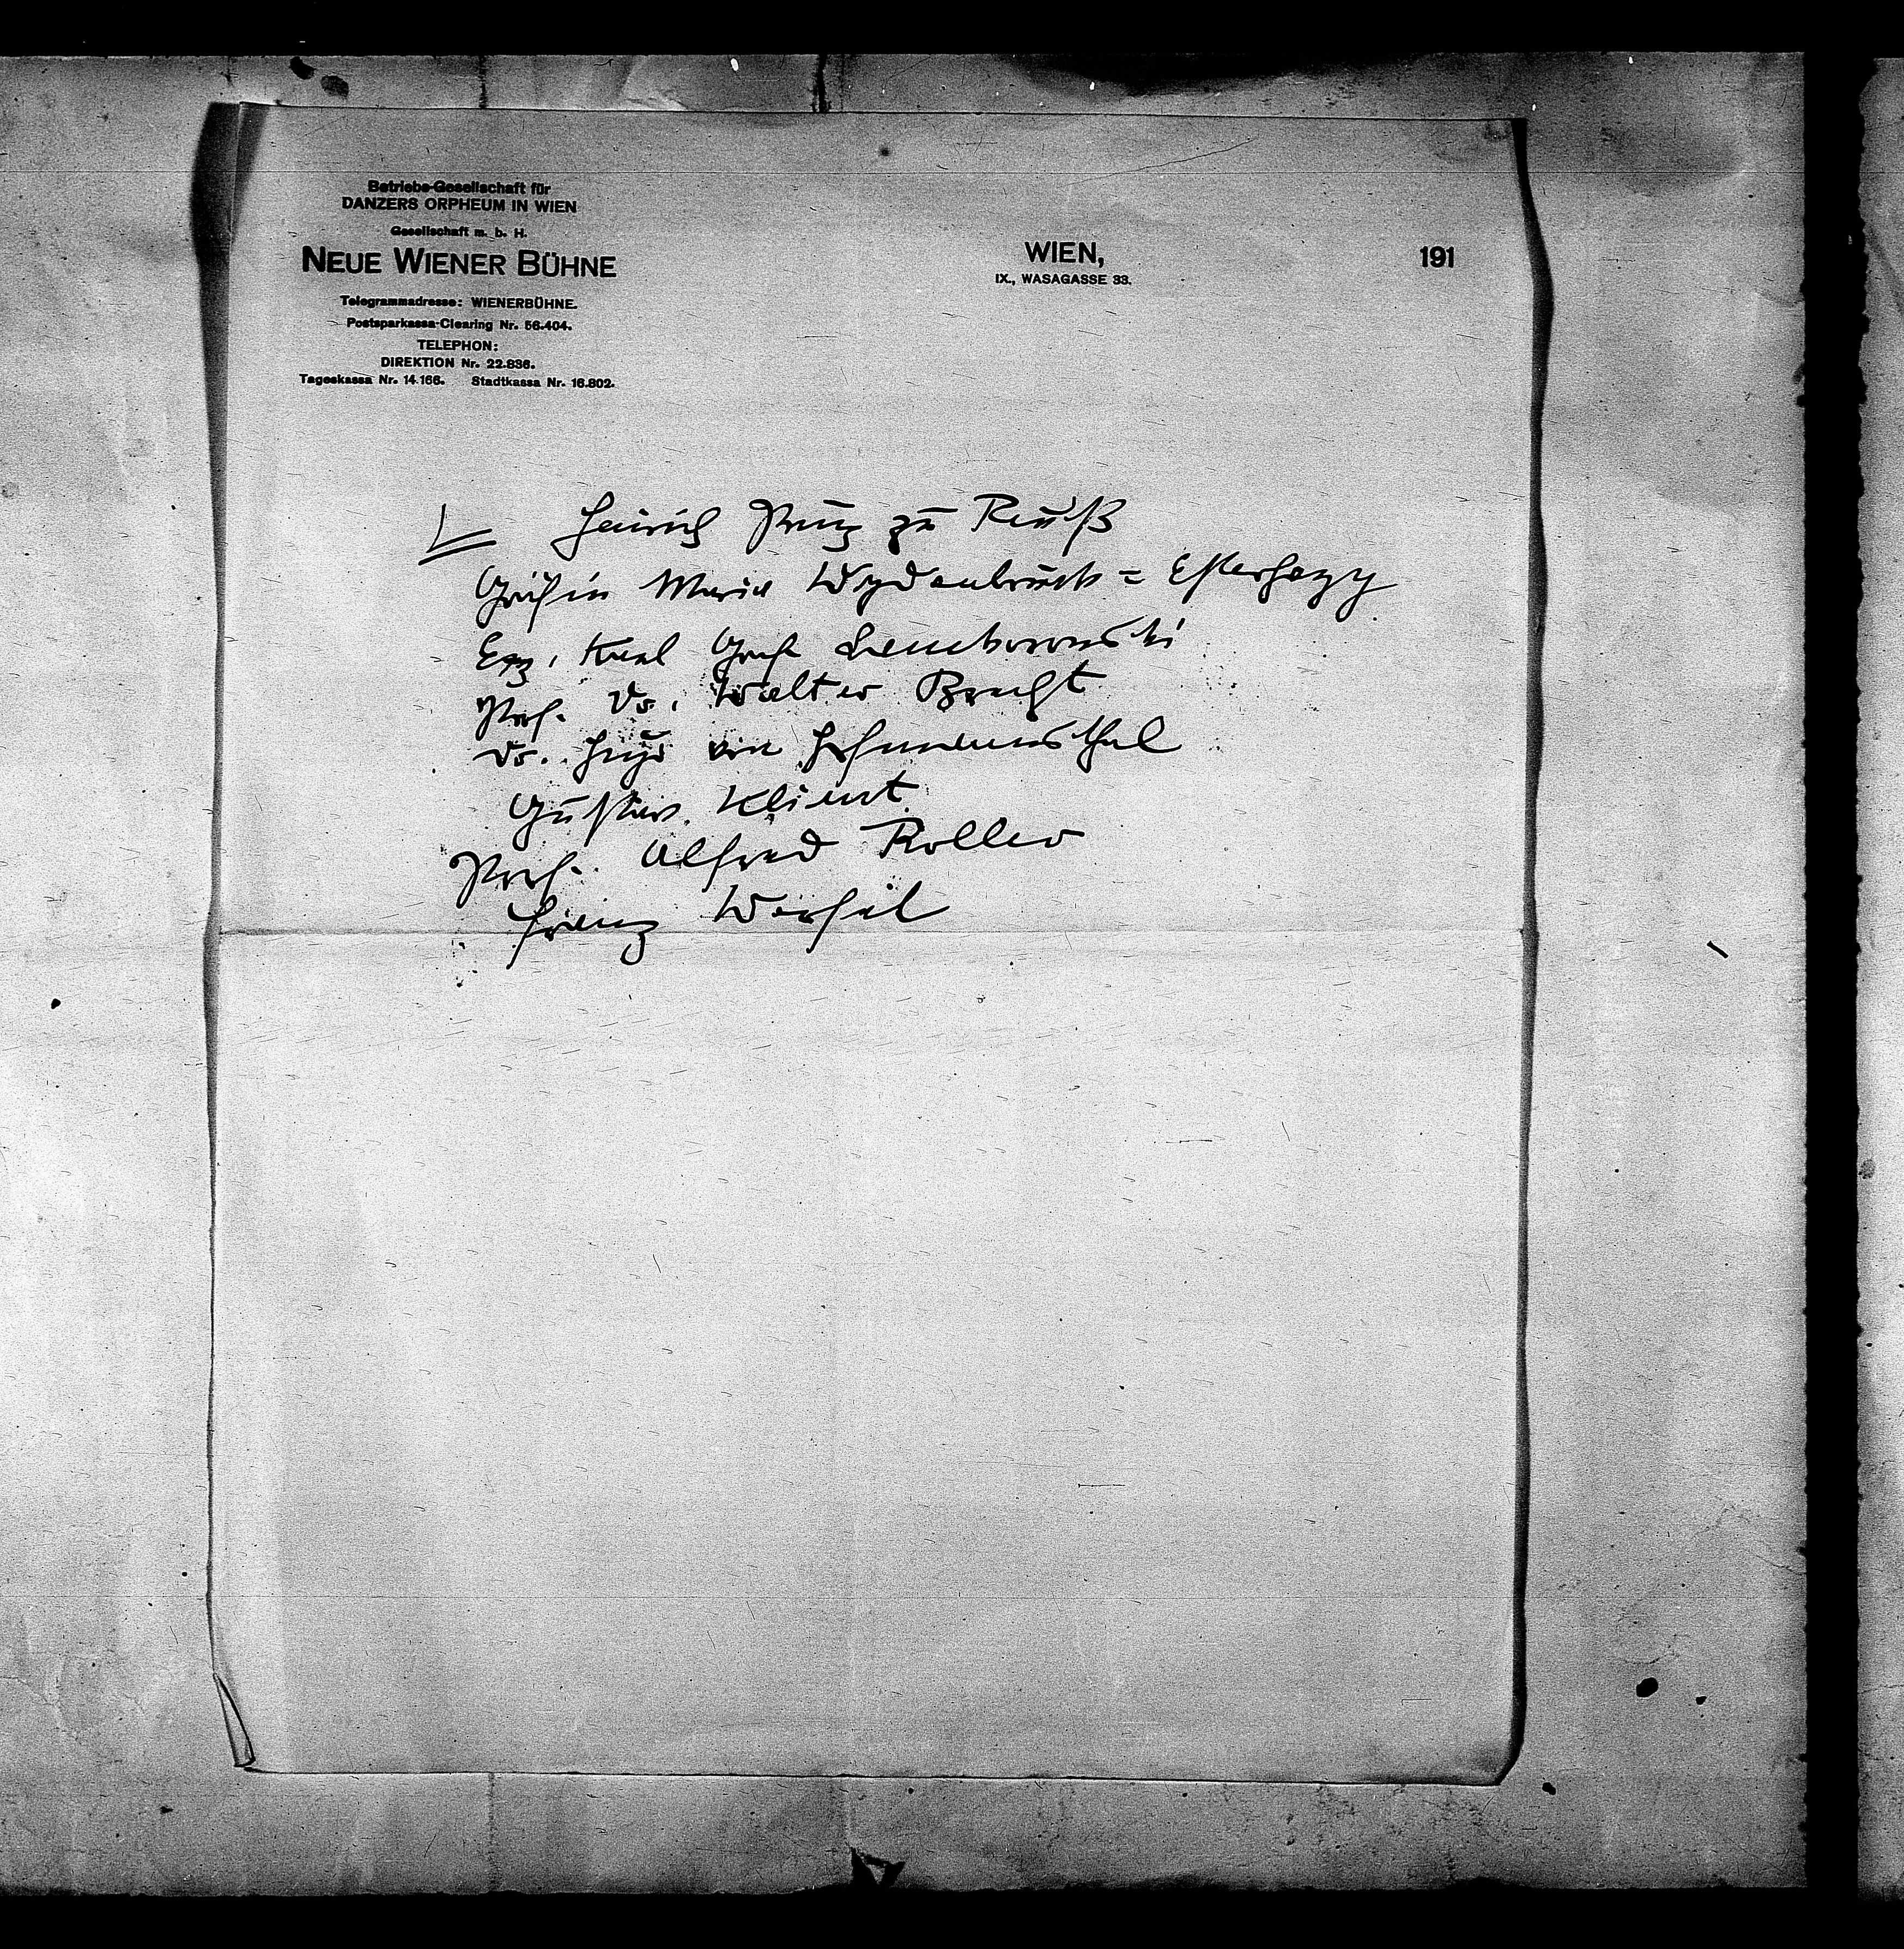 Betriebs-Gesellschaft für
DANZERS ORPHEUM IN WIEN
Gesellschaft m. b. H.
NEUE WIENER BÜHNE
Telegrammadresse: WIENERBÜHNE.
Postsparkassa-Clearing Nr. 56.404.
TELEPHON:
DIREKTION Nr. 22.836.
Tageskassa Nr. 14.166. Stadtkassa Nr. 16.802.
WIEN,
IX., WASAGASSE 33.
191
Heinrich Prinz zu Reuß
Gräfin Maria Wydenbruck = Esterhazy
Exz. Karl Graf Lanckoronski
Prof. Dr. Walter Brecht
Dr. Hugo von Hofmannsthal
Gustav Klimt
Prof. Alfred Roller
Franz Werfel